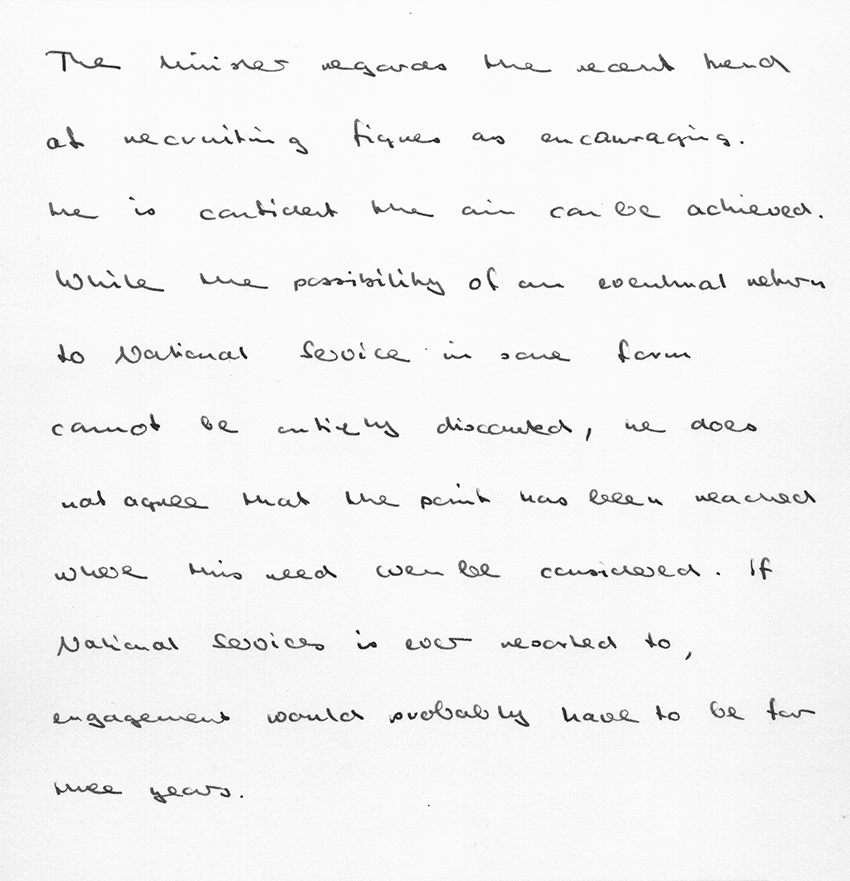 The Minister regards the recent trend
of recruiting figures as encouraging.
He is confident the aim can be achieved.
While the possibility of an eventual return
to National Service in some form
cannot be entirely discounted, he does
not agree that the point has been reached
where this need even be considered. If
National Services is ever resorted to,
engagement would probably have to be for
three years.